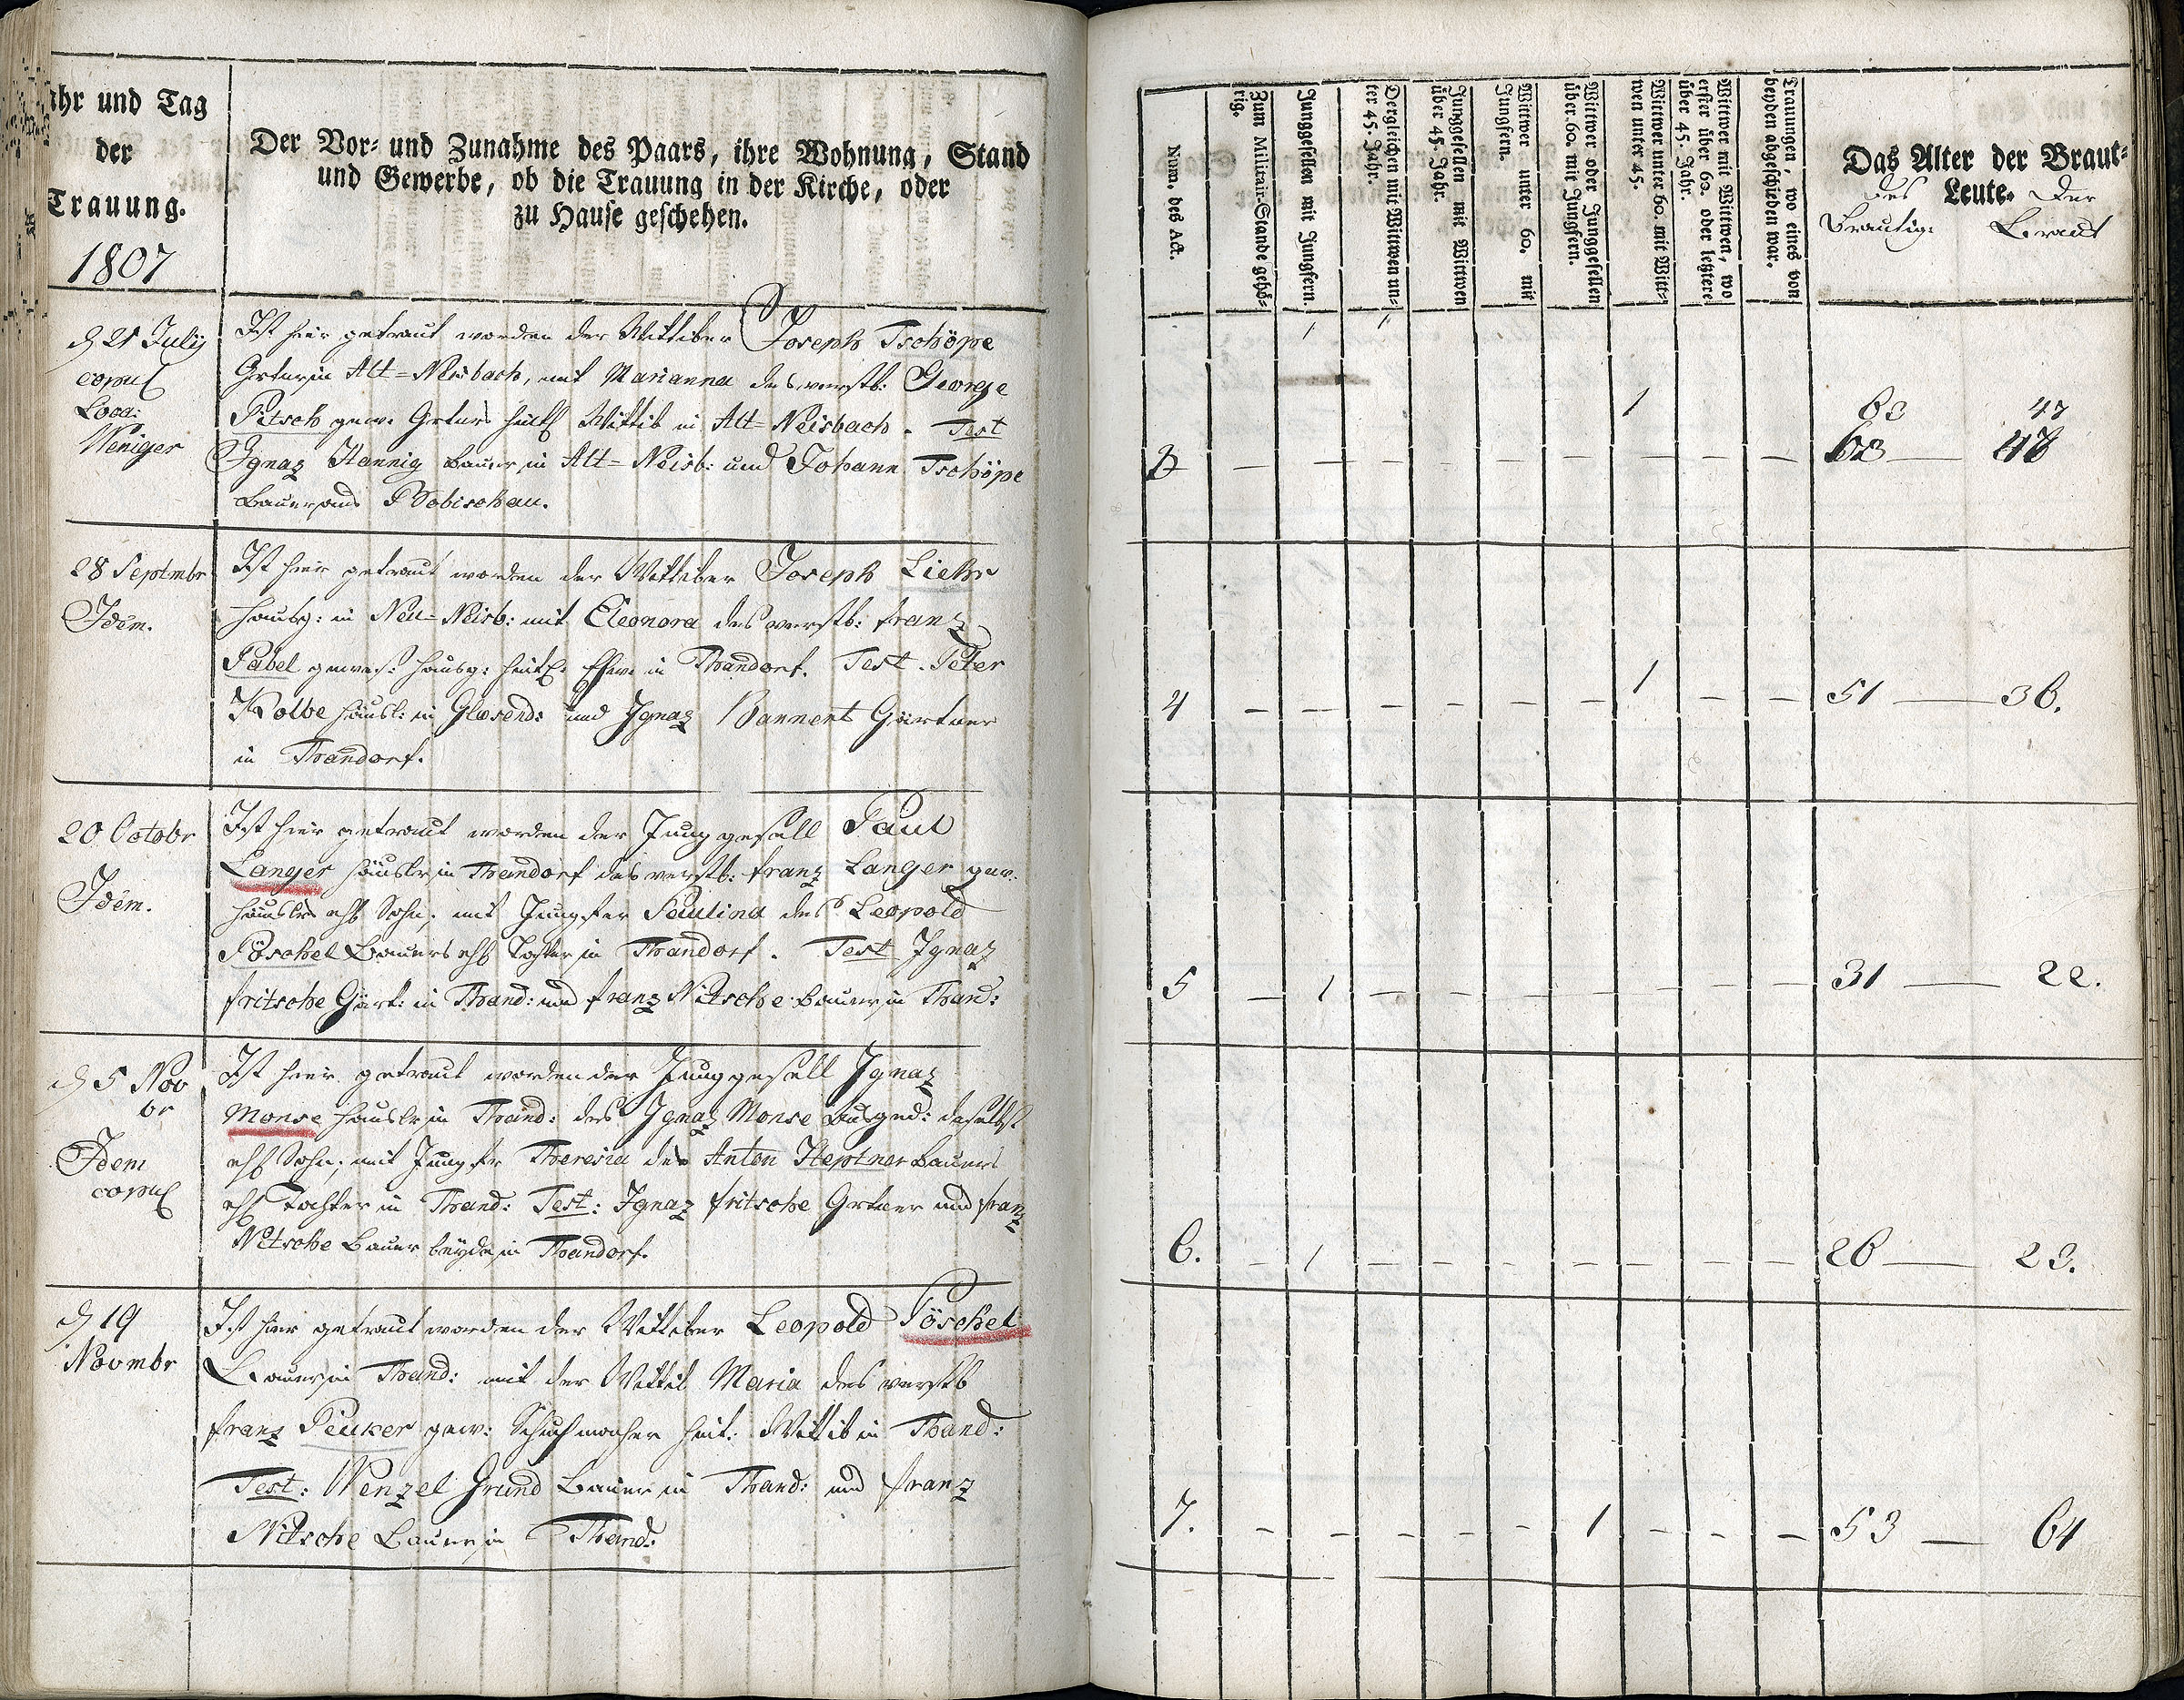 ahr und Tag
der
Trauung.
1807
Der Vor- und Zunahme des Paars, ihre Wohnung, Stand
und Gewerbe, ob die Trauung in der Kirche, oder
zu Hause geschehen.
d 21 July
copul
Loca:
Weniger
Ist hier getraut worden der Wittiber Joseph Tschöpe
Grtner in Alt-Neisbach, mit Marianna des verstb: George
Pitsch gew. Grtners Wittib in Alt-Neisbach. Test
Ignaz Hannig Bauer in Alt-Neisb: und Johann Tschöpe
Bauer aus Bobischau.
28 Septmbr
Idem.
Ist hier getraut worden der Wittiber Joseph Liehr
Hausg: in Neu-Neisb: mit Eleonora des verstb: Franz
Pabel gewes: Hausg: in Thandorf. Test. Peter
Kolbe Häusl: in Glasend: und Ignaz Bannent Gärtner
in Thandorf.
20 Octobr
Idem.
Ist hier getraut worden der Junggesell Paul
Langer Häusler in Thandorf des verstb: Franz Langer gew.
Häuslers ehl Sohn; mit Jungfer Paulina des Leopold
Pöschel Bauers ehl Tochter in Thandorf. Test Ignaz
Fritsche Gärt: in Thand: und Franz Nitsche Bauer in Thand:
d 5 Nov
br
Idem
copul
Ist hier getraut worden der Junggesell Ignaz
Monse Häusler in Thand: des Ignaz Monse Ausged: daselbst
ehl Sohn; mit Jungfr Theresia des Anton Heptner Bauers
ehl Tochter in Thand: Test: Ignaz Fritsche Grtner und Franz
Nitsche Bauer beyde in Thandorf.
d 19
Novmbr
Ist hier getraut worden der Wittiber Leopold Pöschel
Bauer in Thand: mit der Wittib Maria des verstb
Franz Peuker gew: Schuhmacher Wittib in Thand:
Test: Wenzel Grund Bauer in Thand: und Franz
Nitsche Bauer in Thand:
Num. des Act.
Zum Militair-Stande gehö-
rig.
Junggesellen mit Jungfern.
Dergleichen mit Wittwen un-
ter 45. Jahr.
Junggesellen mit Wittwen
über 45. Jahr.
Wittwer unter 60. mit
Jungfern.
Wittwer oder Junggesellen
über 60. mit Jungfern.
Wittwer unter 60. mit Witt-
wen unter 45.
Wittwer mit Wittwen, wo
erster über 60. oder letztere
über 45. Jahr.
Trauungen, wo eines von
beyden abgeschieden war.
Das Alter der Braut-
Leute.
des Der
Brautig: Braut
1 1
1 63 47
3 — — — — — — — — — 63 — 48
4 — — — — — — 1 — — 51 — 36.
5 — 1 — — — — — — — 31 — 22.
6. — 1 — — — — — — — 26 — 23.
7. — — — — — 1 — — — 53 — 64